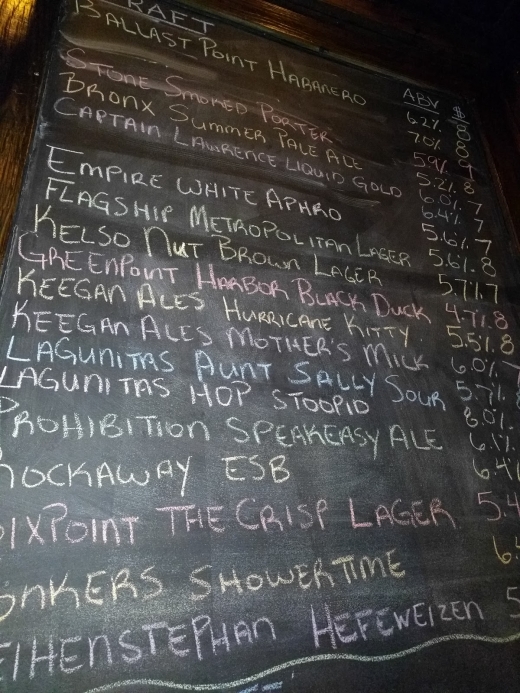 RAFT
ABV $
BALLAST POINT HABANERO 6.2% 8
STONE SMOKED PORTER 7.0% 8
BRONX SUMMER PALE ALE 5.9% 9
CAPTAIN LAWRENCE LIQUID GOLD 5.2% 8
6.0% 7
EMPIRE WHITE APHRO 6.4% 7
FLAGSHIP METROPOLITAN LAGER 5.6% 7
KELSO NUT BROWN LAGER 5.6% 8
GREENPOINT HARBOR BLACK DUCK 5.7% 7
KEEGAN ALES HURRICANE KITTY 4.7% 8
KEEGAN ALES MOTHER'S MILK 5.5% 8
LAGUNITAS AUNT SALLY SOUR 6.0%
LAGUNITAS HOP STOOPID 5.7%
PROHIBITION SPEAKEASY ALE 8.0%
ROCKAWAY ESB 6.1%
SIXPOINT THE CRISP LAGER 5.4
YONKERS SHOWERTIME 6.
EIHENSTEPHAN HEFEWEIZEN 5